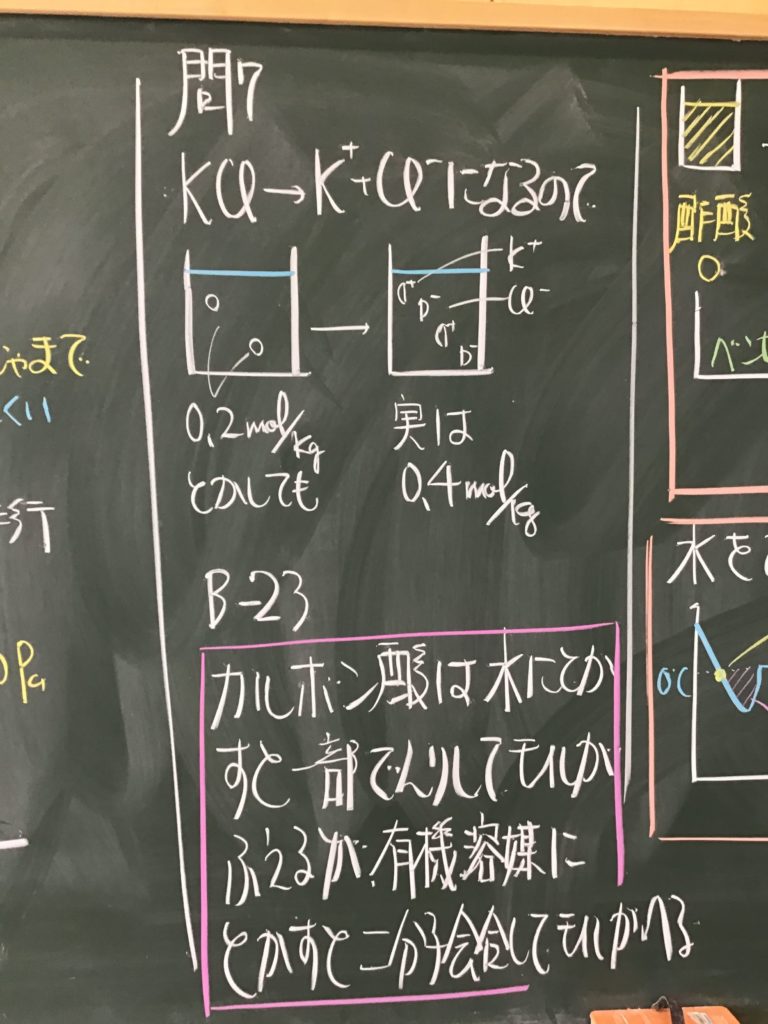 問7
KCl→K⁺+Cl⁻になるので
K⁺
Cl⁻
0.2mol/kg
とかしても
実は
0.4mol/kg
B-23
カルボン酸は水にとか
すと一部でんりしてモルが
ふえるが、有機溶媒に
とかすと二分子会合してモルがへる
ゃまで
くい
行
Pa
酢酸
ベン
水を
0℃